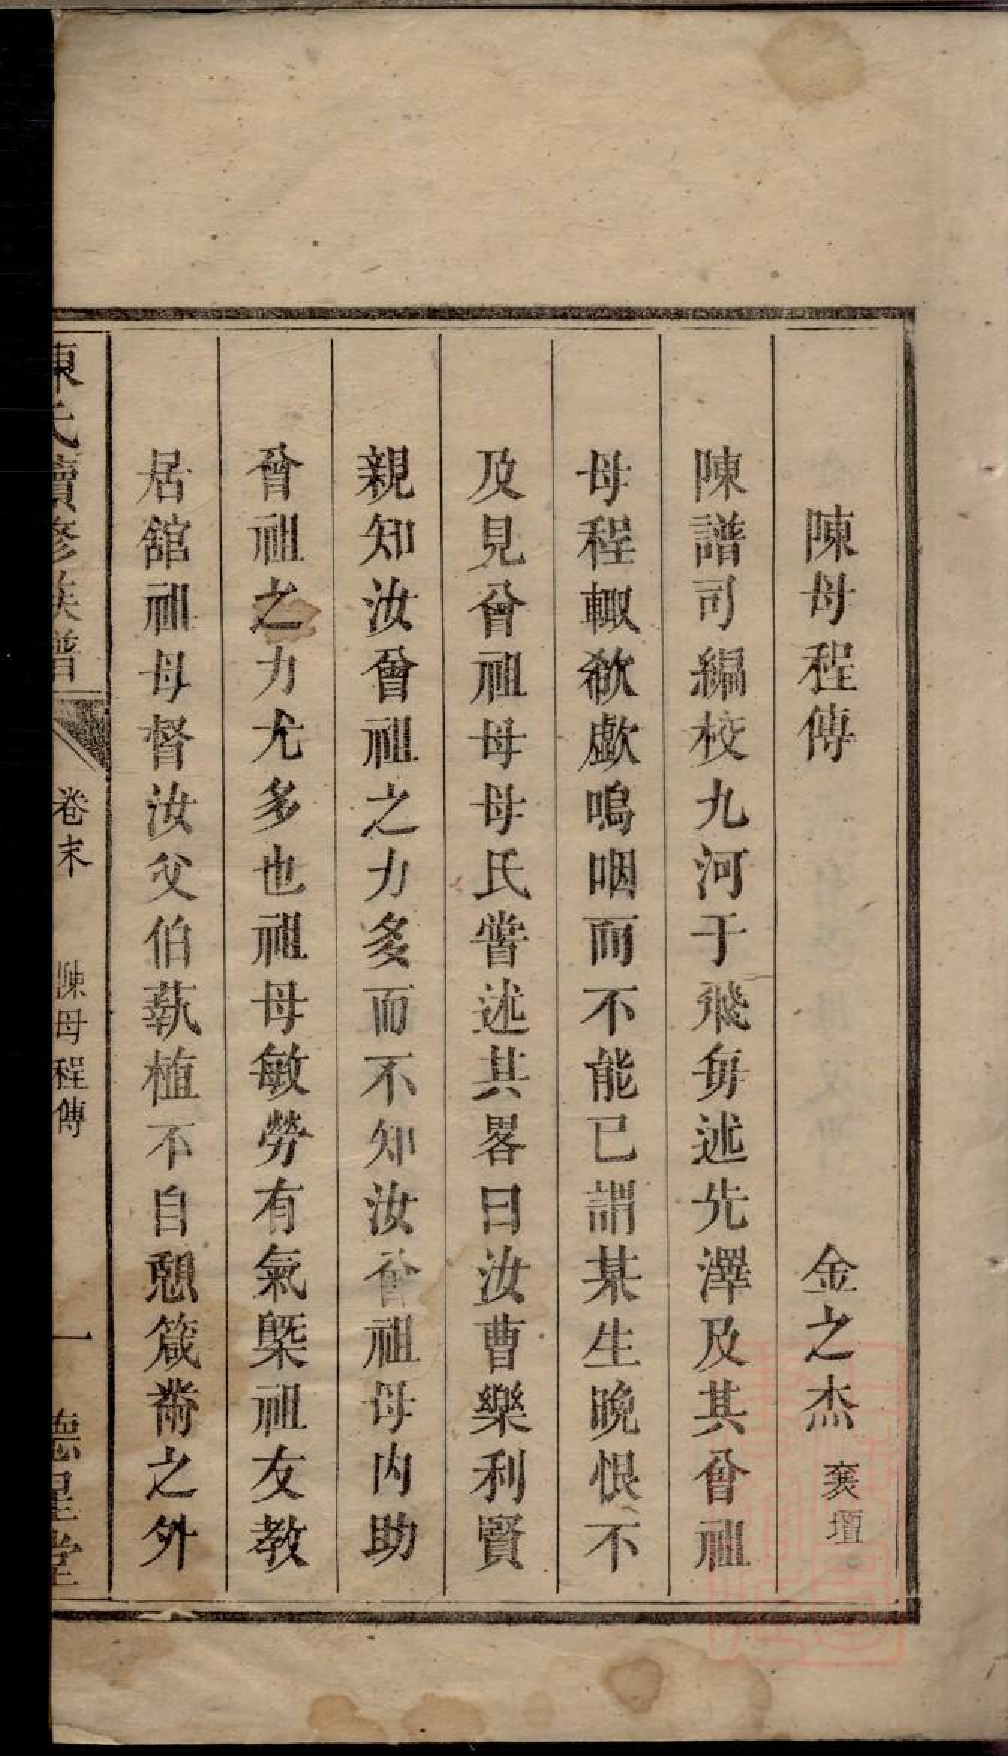 陳母程傳 金之杰 襄壇
陳譜司編校九河于飛每述先澤及其曾祖
母程輙欷歔嗚咽而不能已謂某生晚恨不
及見曾祖母母氏嘗述其畧曰汝曹樂利賢
親知汝曾祖之力多而不知汝曾祖母内助
曾祖之力尤多也祖母敏勞有氣槩祖友教
居舘祖母督汝父伯蓺植不自憩箴黹之外
陳氏續修族譜 卷末 陳母程傳 一 德星堂